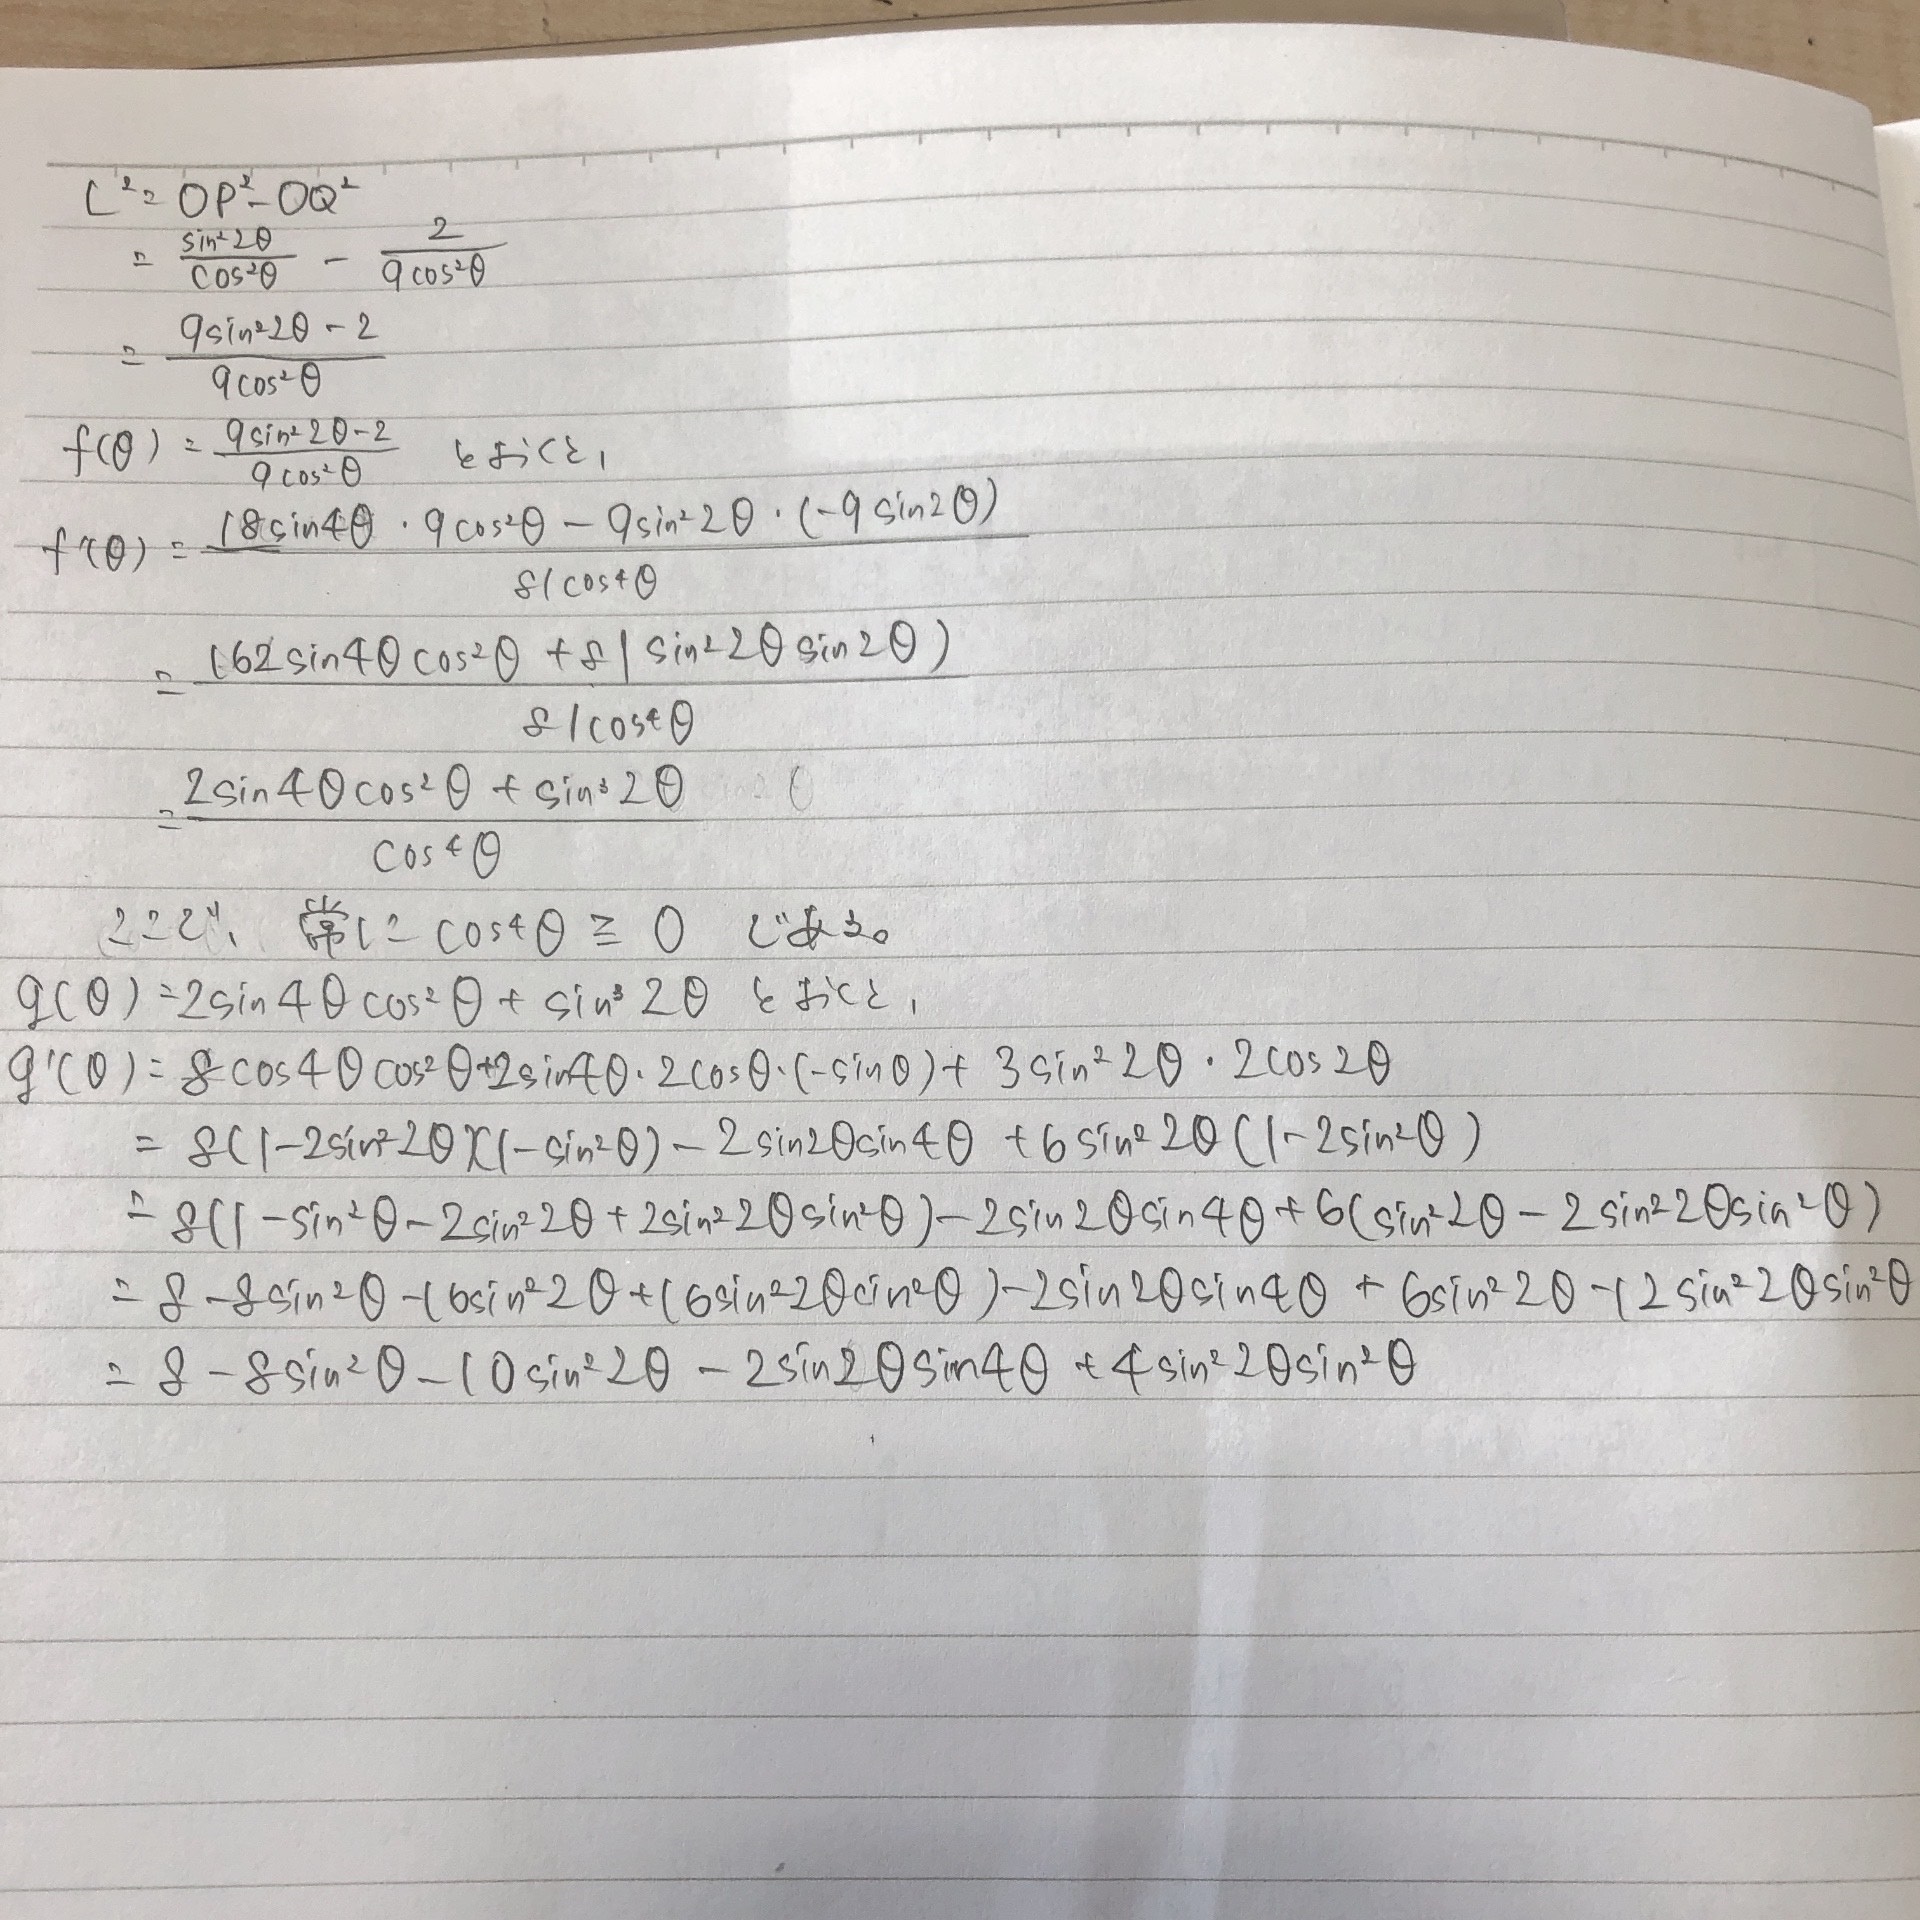 L² = OP² - OQ²
= sin²2θ/cos²θ - 2/9cos²θ
= (9sin²2θ - 2)/9cos²θ
f(θ) = (9sin²2θ-2)/9cos²θ とおくと,
f'(θ) = (18sin4θ・9cos²θ - 9sin²2θ・(-9sin2θ))/81cos⁴θ
= (162sin4θcos²θ + 81sin²2θsin2θ)/81cos⁴θ
= (2sin4θcos²θ + sin³2θ)/cos⁴θ
ここで、常に cos⁴θ ≧ 0 である。
g(θ) = 2sin4θcos²θ + sin³2θ とおくと,
g'(θ) = 8cos4θcos²θ+2sin4θ・2cosθ・(-sinθ)+ 3sin²2θ・2cos2θ
= 8(1-2sin²2θ)(1-sin²θ) - 2sin2θsin4θ + 6sin²2θ(1-2sin²θ)
= 8(1-sin²θ-2sin²2θ+2sin²2θsin²θ)-2sin2θsin4θ+6(sin²2θ-2sin²2θsin²θ)
= 8-8sin²θ-16sin²2θ+16sin²2θsin²θ)-2sin2θsin4θ + 6sin²2θ-12sin²2θsin²θ
= 8-8sin²θ-10sin²2θ-2sin2θsin4θ+4sin²2θsin²θ